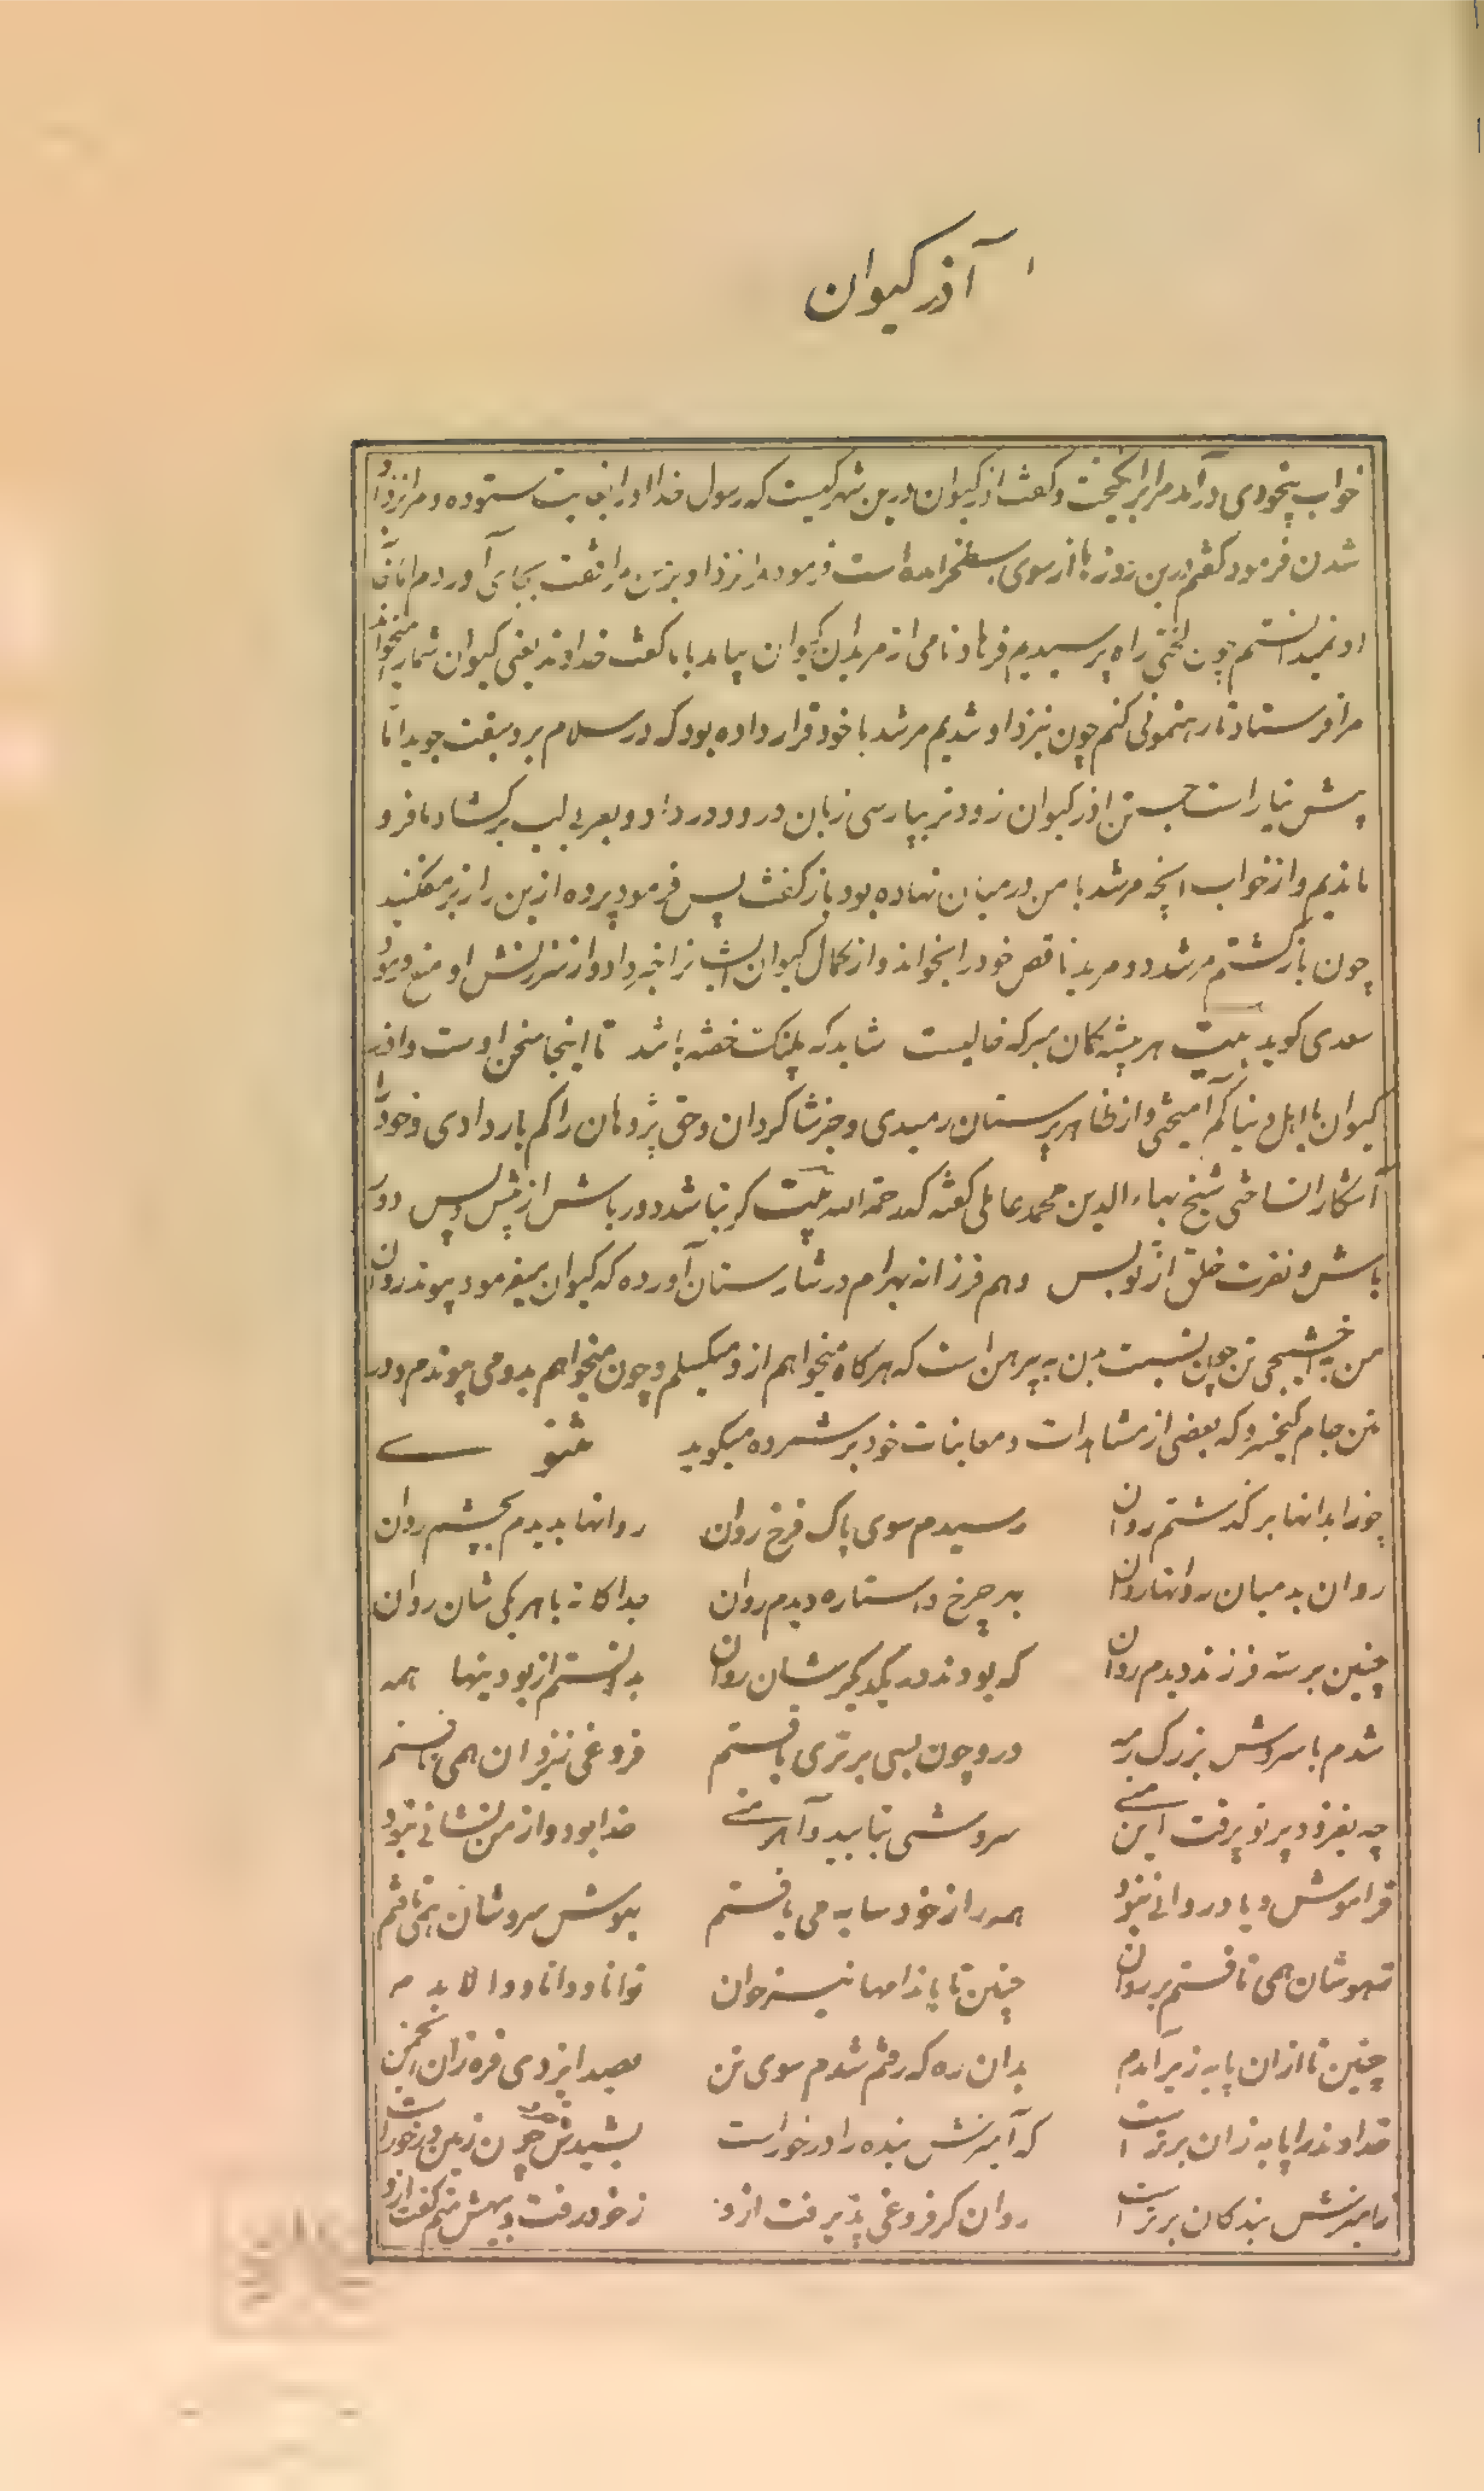 آذر کیوان
خواب بیخودی درآمد مرا برانگیخت و گفت اذر کیوان درین شهر کیست که رسول خدا اورا بغایت ستوده و مرا نزد او
شدن فرمود گفتم درین روزها از سوی اسطخر آمده است فرمود مرا نزد او بر من رفتن بجای آوردم اما
او نمیدانستم چون لختی راه پرسیدیم فرهاد نامی از مریدان کیوان بیامد با ما گفت خداوند یعنی کیوان شما را میخواند
مرا فرستاد تا رهنمونی کنم چون بنزد او شدیم مرشد با خود قرار داده بود که در سلام برو سبقت جوید اما
پیش نیارست جستن اذر کیوان زودتر بپارسی زبان درود در داد و بعربی لب برکشاد ما فرو
ماندیم و از خواب انچه مرشد با من درمیان نهاده بود باز گفت پس فرمود پرده ازین راز بر مفکنید
چون بازگشتم مرشد دو مرید ناقص خود را بخواند و از کمال کیوان ایشانرا خبر داد و از سرزنش او منع فرمود
سعدی کوید بیت هر بیشه کمان مبر که خالیست شاید که پلنک خفته باشد تا اینجا سخن اوست واذر
کیوان با اهل دنیا کم آمیختی و از ظاهر پرستان رمیدی و جز شاکردان و حق پژوهان را کم بار دادی و خود را
آشکارا نساختی شیخ بهاء الدین محمد عاملی کفته که رحمة الله بیت کر نباشد دور باش از پیش و پس دور
باش و نفرت خلق از تو بس وهم فرزانه بهرام در شارستان آورده که کیوان میفرمود پیوند روان
من به آخشیجی تن چون نسبت تن به پیرهن است که هرکاه میخواهم ازو میکسلم و چون میخواهم بدو می پیوندم و در
متن جام کیخسرو که بعضی از مشاهدات و معاینات خود بر شمرده میکوید مثنوی
چو زابدانها بر کذشتم روان رسیدم سوی پاک فرخ روان روانها بدیدم بچشم روان
روان بد میان روانها روان بهر چرخ و استاره دیدم روان جداکانه با هر یکی شان روان
چنین بر سه فرزند دیدم روان که بودند در یکدیکر شان روان بدانستم از بودنیها همه
شدم با سروش بزرک رمه درو چون بسی برتری یافتم فروغی ز یزدان همی یافتم
چه بفزود پرتو برفت این منی سروشی نتابید و آهرمنی خدا بود و از من نشانی نبود
فراموش و یاد روانی نبود همه را ز خود سایه می یافتم بهوش سروشان همی تافتم
ز هوشان همی تافتم بر روان چنین تا باندامها نیز خوان توانا و دانا و والا بدم
چنین تا ازان پایه زیر آمدم بدان ره که رفتم شدم سوی تن بصد ایزدی فره زان انجمن
خداوند را پایه زان برتر است که آمیزش بنده را در خور است
ز آمیزش بندکان برتر است روان کر فروغی پذیرفت ازو ز خود رفت و بیهش منم کفت ازو